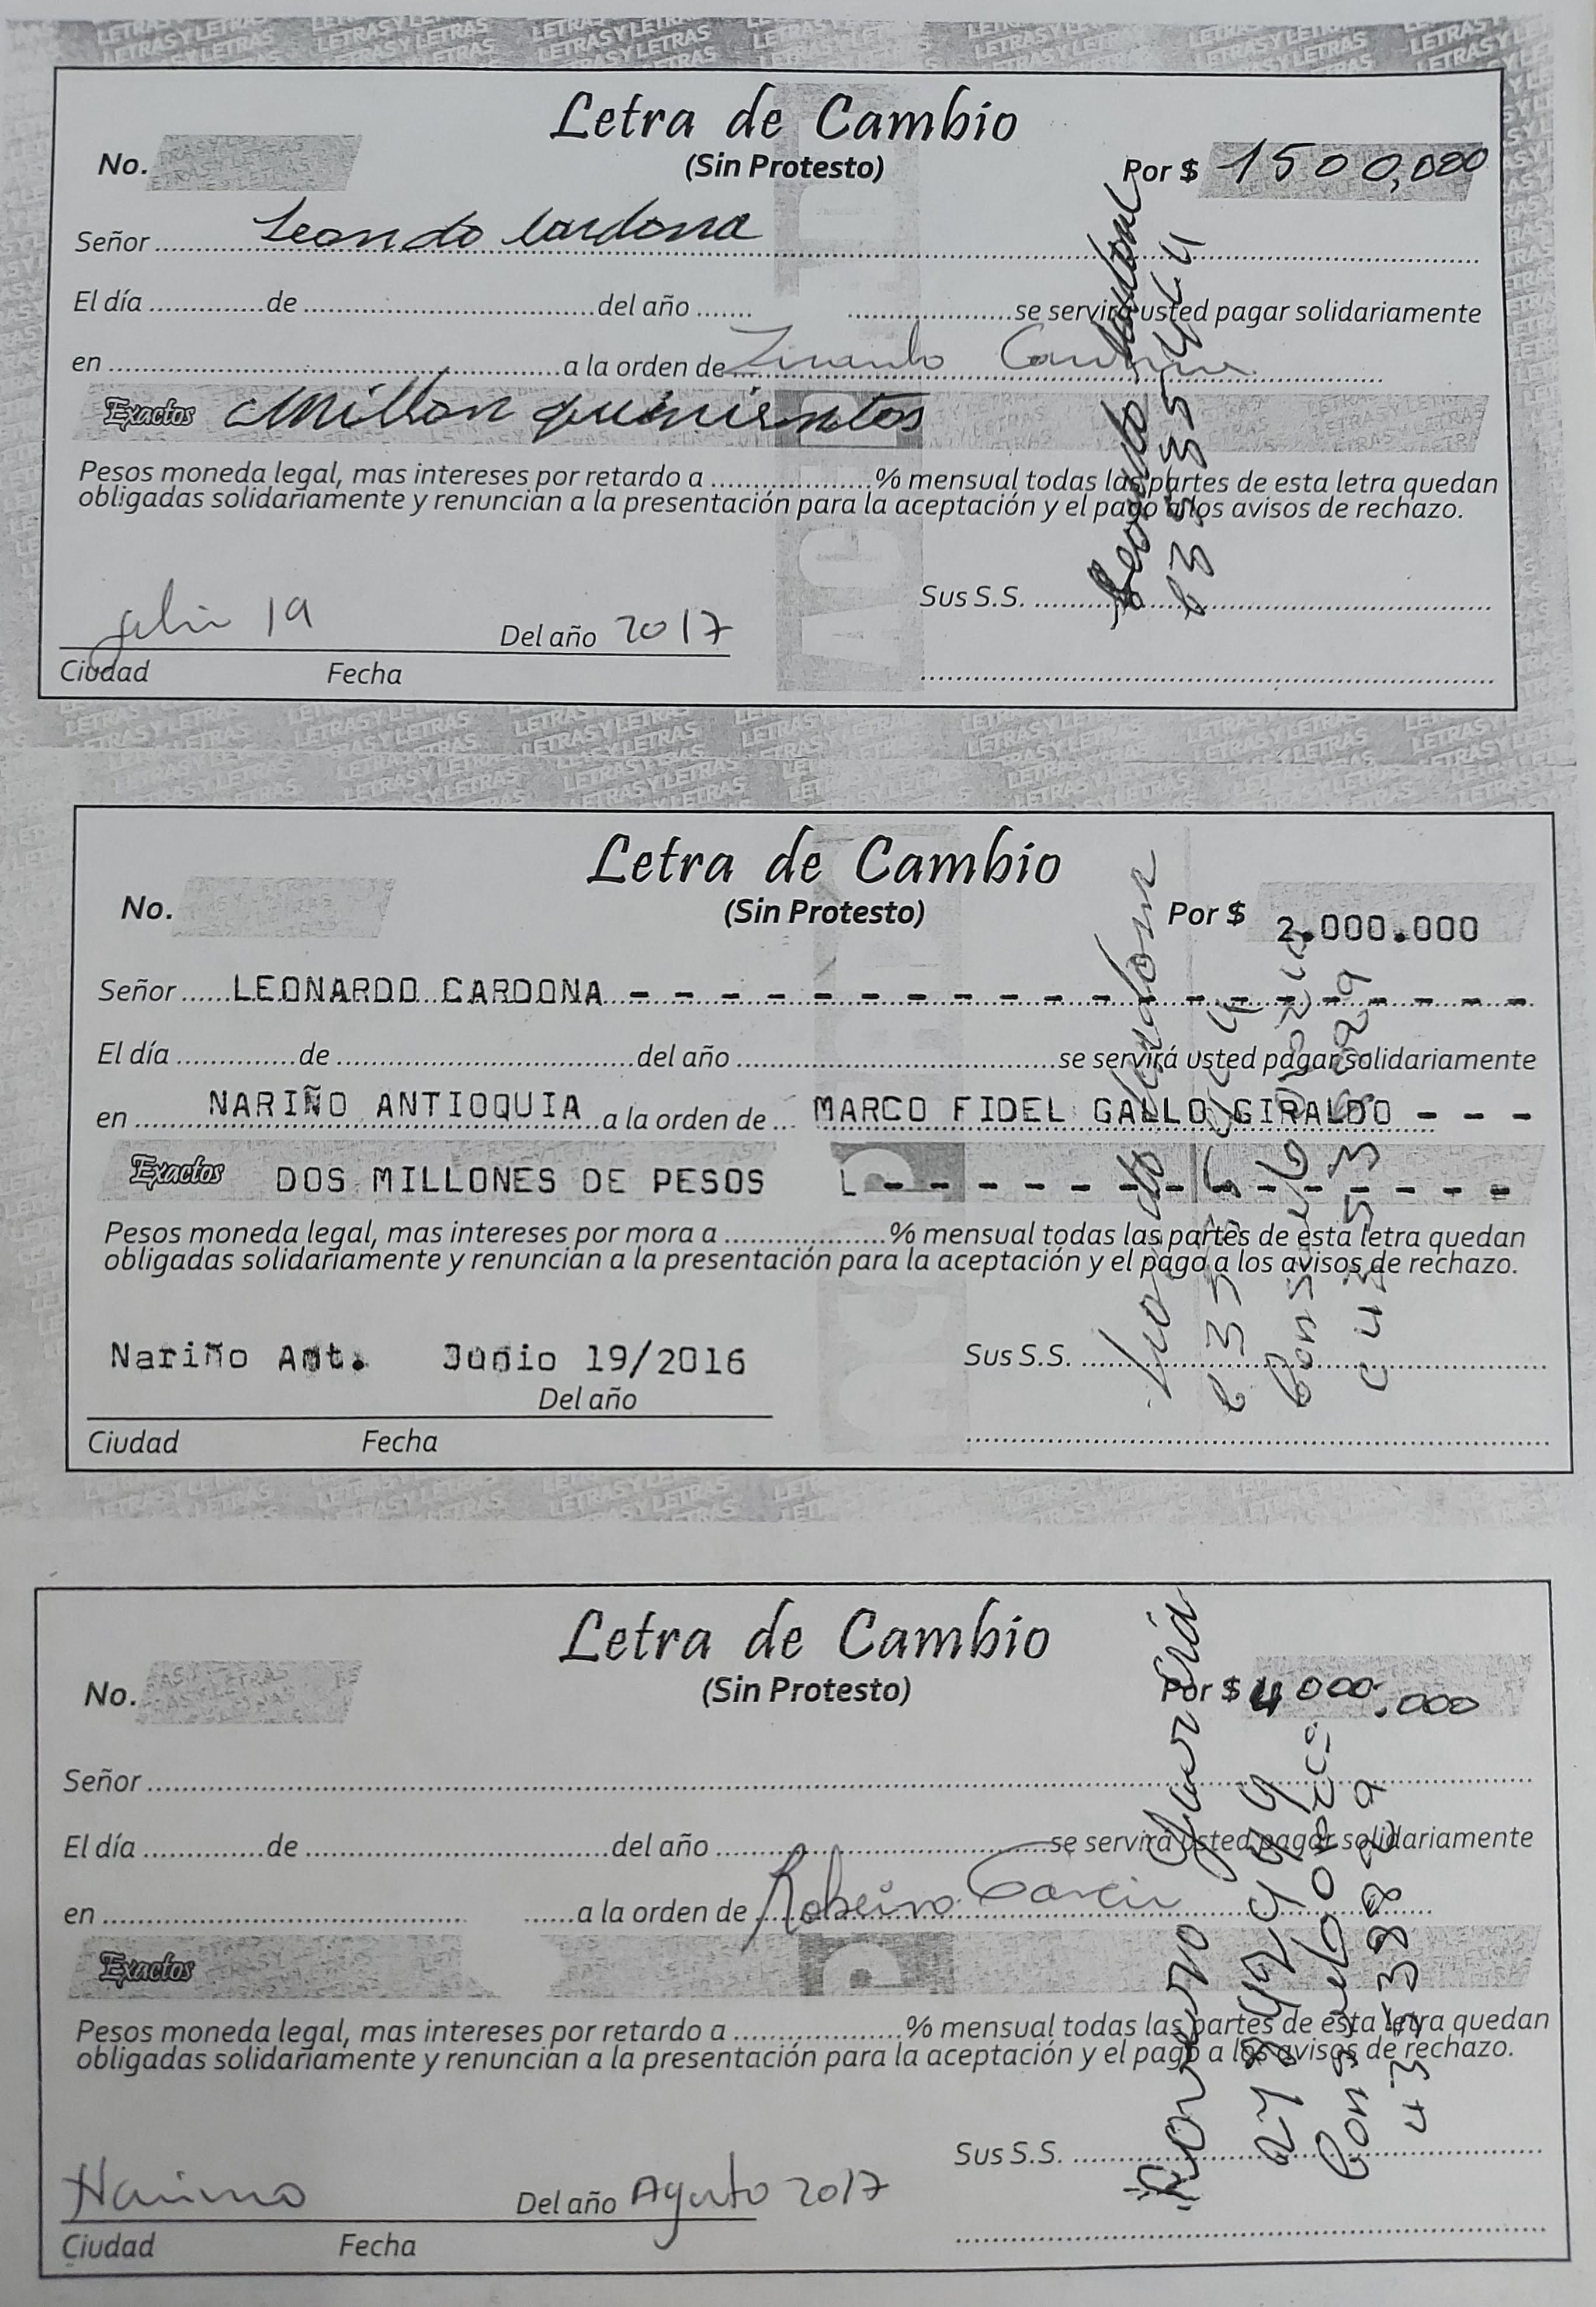 Letra de Cambio
(Sin Protesto)
No.
Por $ 1500,000
Señor Leonardo Cardona
El día de del año se servirá usted pagar solidariamente
en a la orden de
Exactos Millon quinientos
Pesos moneda legal, mas intereses por retardo a % mensual todas las partes de esta letra quedan
obligadas solidariamente y renuncian a la presentación para la aceptación y el pago a los avisos de rechazo.
Sus S.S.
julio 19 Del año 2017
Ciudad Fecha
Letra de Cambio
(Sin Protesto)
No.
Por $ 2.000.000
Señor LEONARDO CARDONA - - - - - - - - - - - - - - - - - - - -
El día de del año se servirá usted pagar solidariamente
en NARIÑO ANTIOQUIA a la orden de MARCO FIDEL GALLO GIRALDO - - -
Exactos DOS MILLONES DE PESOS L - - - - - - - - - - - - - -
Pesos moneda legal, mas intereses por mora a % mensual todas las partes de esta letra quedan
obligadas solidariamente y renuncian a la presentación para la aceptación y el pago a los avisos de rechazo.
Nariño Ant. Junio 19/2016
Sus S.S.
Del año
Ciudad Fecha
Letra de Cambio
(Sin Protesto)
No.
Por $ 4000.000
Señor
El día de del año se servirá usted pagar solidariamente
en a la orden de Robeiro Garcia
Exactos
Pesos moneda legal, mas intereses por retardo a % mensual todas las partes de esta letra quedan
obligadas solidariamente y renuncian a la presentación para la aceptación y el pago a los avisos de rechazo.
Sus S.S.
Nariño Del año Agosto 2017
Ciudad Fecha